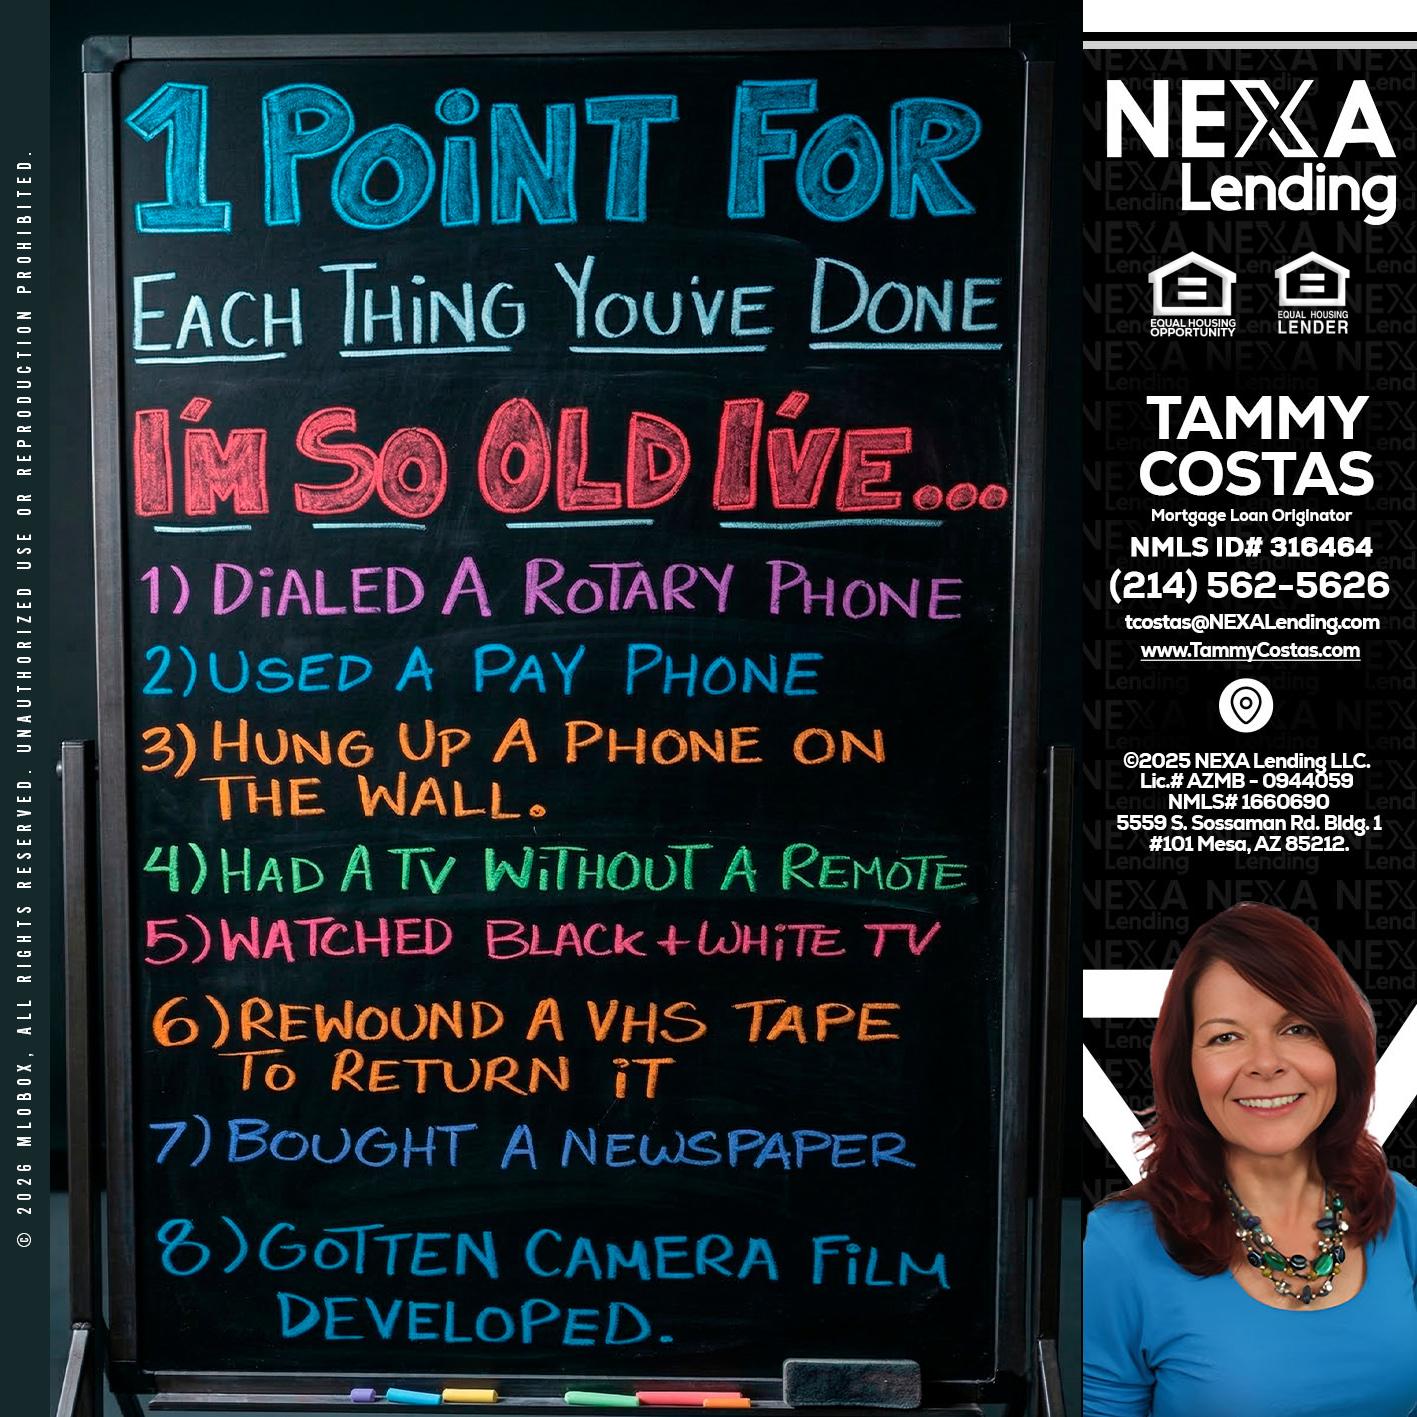 © 2026 MLOBOX, ALL RIGHTS RESERVED. UNAUTHORIZED USE OR REPRODUCTION PROHIBITED.
1 POiNT FOR
EACH THiNG YOU'VE DONE
I'M SO OLD I'VE...
1) DiALED A ROTARY PHONE
2) USED A PAY PHONE
3) HUNG UP A PHONE ON
THE WALL.
4) HAD A TV WiTHOUT A REMOTE
5) WATCHED BLACK + WHiTE TV
6) REWOUND A VHS TAPE
TO RETURN iT
7) BOUGHT A NEWSPAPER
8) GOTTEN CAMERA FiLM
DEVELOPED.
NEXA
Lending
EQUAL HOUSING
OPPORTUNITY
EQUAL HOUSING
LENDER
TAMMY
COSTAS
Mortgage Loan Originator
NMLS ID# 316464
(214) 562-5626
tcostas@NEXALending.com
www.TammyCostas.com
©2025 NEXA Lending LLC.
Lic.# AZMB - 0944059
NMLS# 1660690
5559 S. Sossaman Rd. Bldg. 1
#101 Mesa, AZ 85212.